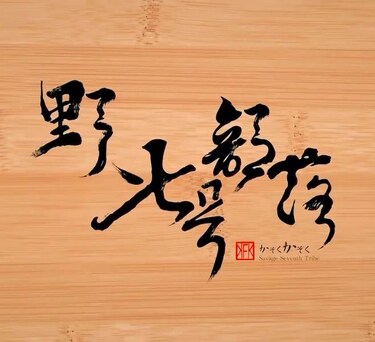 野七号部落
かぞくかぞく
Savage Seventh Tribe